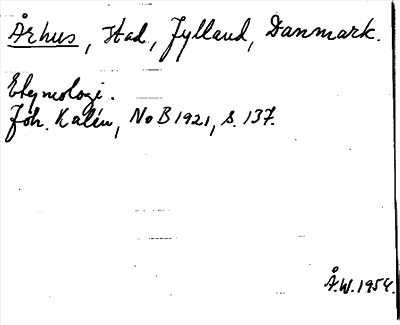 Århus, stad, Jylland, Danmark.
Etymologi.
Joh. Kalén, NoB 1921, s. 137.
Å.W. 1954.